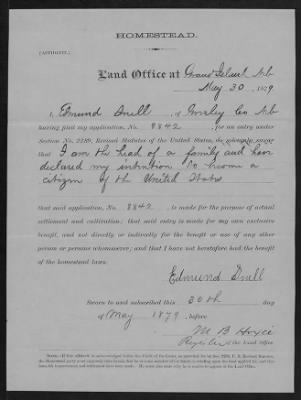 HOMESTEAD.
(AFFIDAVIT.)
Land Office at Grand Island Neb
May 30, 1879
I, Edmund Snell, of Greeley Co Neb
having filed my application, No. 8842, for an entry under
Section No. 2289, Revised Statutes of the United States, do solemnly swear
that I am the head of a family and have
declared my intention to become a
citizen of the United States
that said application, No. 8842, is made for the purpose of actual
settlement and cultivation; that said entry is made for my own exclusive
benefit, and not directly or indirectly for the benefit or use of any other
person or persons whomsoever; and that I have not heretofore had the benefit
of the homestead laws.
Edmund Snell
Sworn to and subscribed this 30th day
of May 1879, before
M B Hoxie
Register of the Land Office.